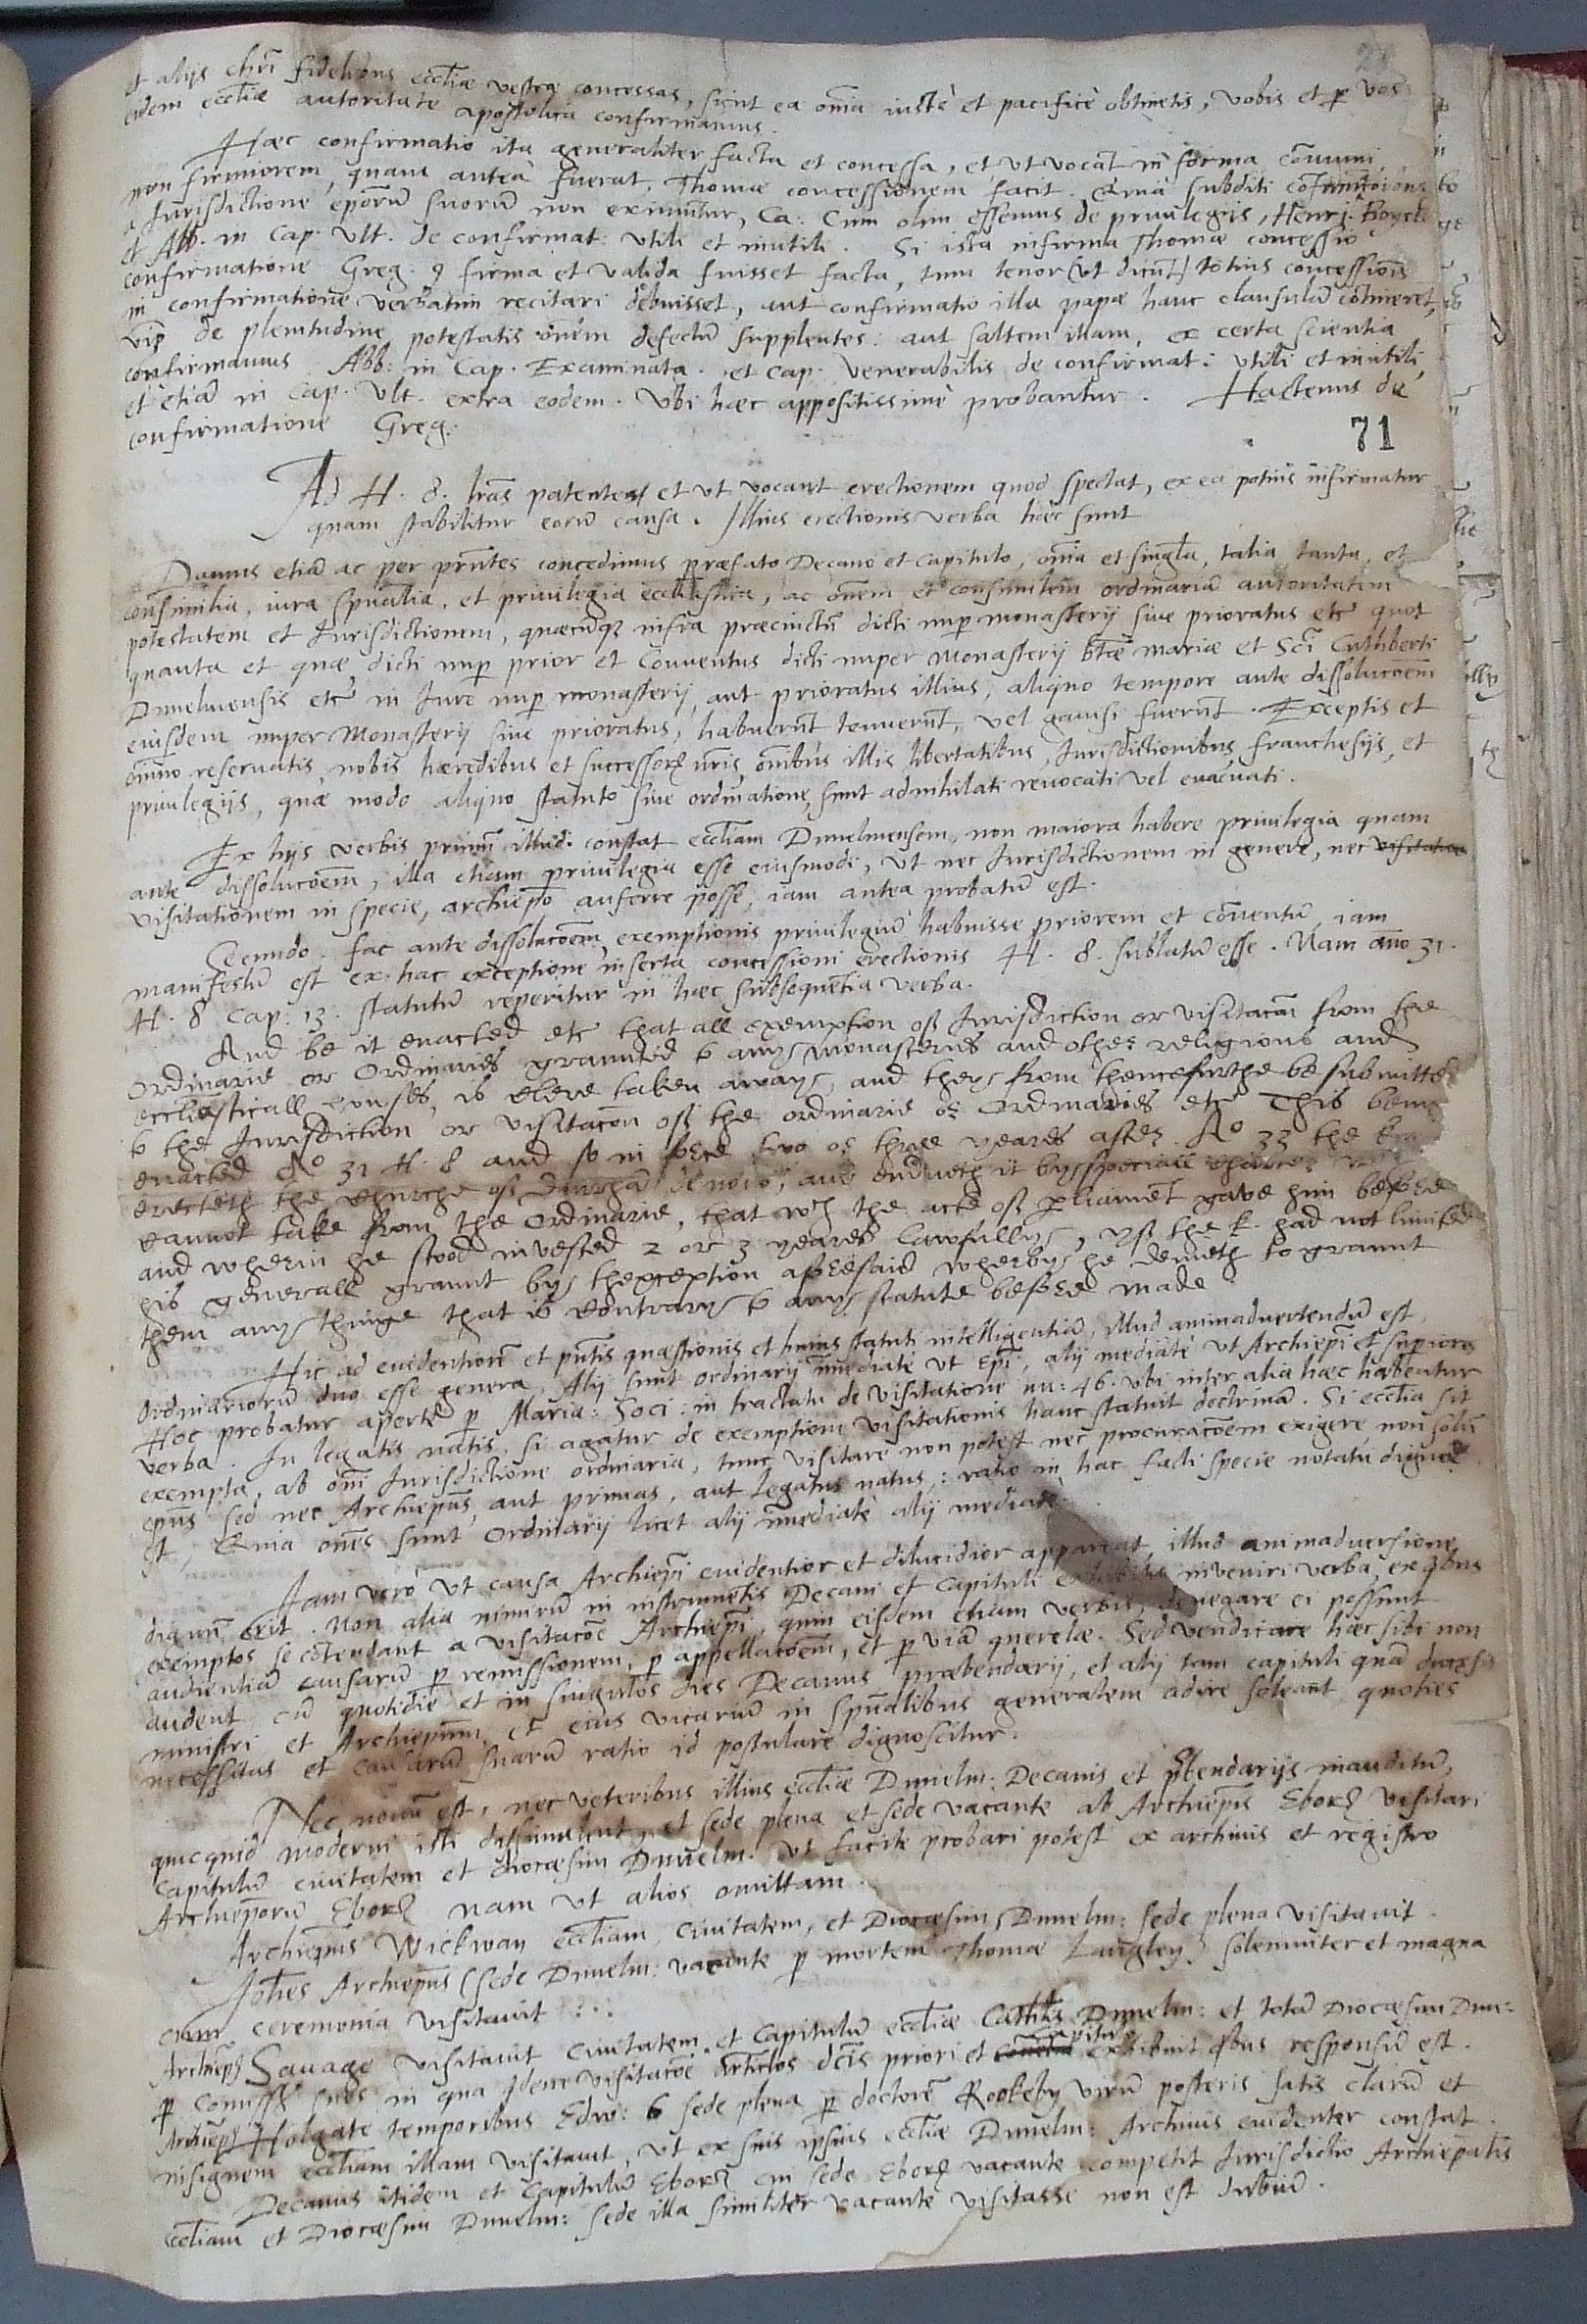 et alijs Chrī fidelibus eccliæ vestræ concessas, sicut ea oīa iustè et pacificè obtinetis, vobis et p vos
eidem eccliæ autoritate apostolica confirmamus.
Hæc confirmatio ita generaliter facta et concessa, et ut vocāt in forma cōmuni
non firmiorem, quam anteà fuerat, Thomæ concessionem facit. Quia subditi
a Jurisdictione epōrū suorū non eximuntur, Ca: Cum olim essemus de privilegiis, Henr: Boyck
et Abb. in Cap. ult. de confirmat: utili et inutili. Si ista infirma Thomæ concessio
confirmatione Greg. 9 firma et valida fuisset facta, tum tenor (ut dicūt) totius concessionis
in confirmatione verbatim recitari debuisset, aut confirmatio illa papæ hanc clausulā cōtineret,
viz de plenitudine potestatis oīnem defectū supplentes: aut saltem illam, ex certa scientia
confirmamus Abb: in Cap. Examinata. et cap. Venerabilis de confirmat: utili et inutili,
et etiā in Cap. Ult. extra eodem. Ubi hæc appositissimè probantur. Hactenus de
confirmatione Greg.
71
Ad H. 8. lrās patentes et ut vocant erectionem quod spectat, ex ea potius infirmatur
quam stabilitur eorū causa. Illius erectionis verba hæc sunt
Damus etiā ac per prntēs concedimus præfato Decano et Capitulo, oīa et singla, talia, tanta, et
consimilia, iura spualia, et privilegia ecclīastica, ac oīnem et consimilem ordinariā autoritatem
potestatem et Jurisdictionem, quæcūqz infra præcinctū dicti nup monasterij sive prioratus etc quot
quanta et quæ dicti nup prior et Conventus dicti nuper Monasterij btæ mariæ et Sci Cuthberti
Dunelmensis etc in Jure nup monasterij, aut prioratus illius, aliqno tempore ante dissolucoēm
eiusdem nuper Monasterij sive prioratus, habuerūt tenuerūt, vel gavisi fuerūt. Exceptis et
oīnino reservatis nobis hæredibus et successorz nris, oīnibus illis libertatibus, Jurisdictionibus franchesijs, et
privilegijs, quæ modo aliqno statuto sive ordinatione, sunt adnihilati revocati vel evacuati.
Ex hijs verbis primū illud constat eccliam Dunelmensem, non maiora habere privilegia quam
ante dissolucoēm, illa etiam privilegia esse eiusmodi, ut nec Jurisdictionem in genere, nec visitation
visitationem in specie, archiepō auferre posse, iam antea probatū est.
Secundo. fac ante dissolucoēm exemptionis privilegiū habuisse priorem et cōventū, iam
manifestū est ex hac exceptione inserta concessioni erectionis H. 8. sublatū esse. Nam āno 31.
H. 8 Cap: 13. statutū reperitur in hæc subsequētia verba.
And be it enacted etc that all exemption off Jurisdiction or visitacōn from the
Ordinarie or Ordinaries graunted to any monasteries and other religious and
ecclīasticall howses, is cleere taken away, and they from thencefurthe be submitted
to the Jurisdiction or visitacōn off the ordinarie or Ordinaries etc This being
enacted Ao 31 H. 8 and so in force two or three yeares after. Ao 33 the
erecteth the churche off Duresm de novo, and endueth it by speciall charter
cannot take from the Ordinarie, that wch the acte off pliamēt gave him before
and wherin he stood invested 2 or 3 yeares lawfully, yff the k. had not limited
his generall graunt by thexception afforesaid wherby he denieth to graunt
them any thinge that is contrary to any statute before made
Hic ad evidentiorē et pntis quæstionis et huius statuti intelligentiā, illud animadvertendū est,
Ordinariorū duo esse genera. Alij sunt ordinarij īmediatè ut Epī, alij mediatè ut Archiepī et supiores
Hoc probatur apertè p Maria: Soci: in tractatu de visitatione nu: 46. ubi inter alia hæc habentur
verba. In legatis natis, si agatur de exemptione visitationis hanc statuit doctrinā. Si ecclia sit
exempta, ab oīni Jurisdictione ordinaria, tunc visitare non potest nec procuracoēm exigere non solū
epūs sed nec Archiepūs, aut primas, aut legatus natus: ratio in hac facti specie notatu digna
est, Quia oīnes sunt Ordinarij licet alij īmediatè alij mediatè.
Jam verò ut causa Archiepī evidentior et dilucidior appareat, illud animadversione
dignū erit. Non alia nimirū in instrumētis Decani et Capituli inveniri verba, ex qbus
exemptos se cōtendant a visitacōe Archiepī, quin eisdem etiam verbis, denegare ei possunt
audientiā causarū p remissionem, p appellacoēm, et p viā querelæ. Sed vendicare hæc sibi non
audent cū quotidiè et in singulos dies Decanus prabendarij, et alij tam capituli quā
ministri et Archiepūm, et eius vicariū in spūalibus generalem adire soleant quoties
necessitas et causarū suarū ratio id postulare dignoscitur.
Nec novū est, nec veteribus illius eccliæ Dunelm: Decanis et pbendarijs inauditū,
quicquid moderni isti dissimulent, et sede plena et sede vacante ab Archiepīs Eborz visitari
Capitulū civitatem et diocæsim Dunelm. Ut facile probari potest ex archivis et registro
Archiepōrū Eborz nam ut alios omittam.
Archiepūs Wickwan eccliam, civitatem, et Diocæsim Dunelm: sede plena visitavit.
Johēs Archiepūs (sede Dunelm: vacante p mortem Thomæ Langley) solenniter et magna
cum ceremonia visitavit.
Archiepz Savage visitavit civitatem et Capitulū eccliæ Cathlis Dunelm: et totā Diocæsim Dun:
p Comiss3 suos in qua qdem visitacōe Articlos dcīs priori et convtui Capitulo exhibuit qbus responsū est.
Archiepz Holgate temporibus Edw: 6 sede plena p doctorē Rookeby virū posteris satis clarū et
insignem eccliam illam visitavit, ut ex suis ipsius eccliæ Dunelm: Archivis evidenter constat.
Decanus itidem et Capitulū Eborz cui sede Eborz vacante competit Jurisdictio Archiepalis
eccliam et Diocæsim Dunelm: sede illa similiter vacante visitasse non est dubiū.